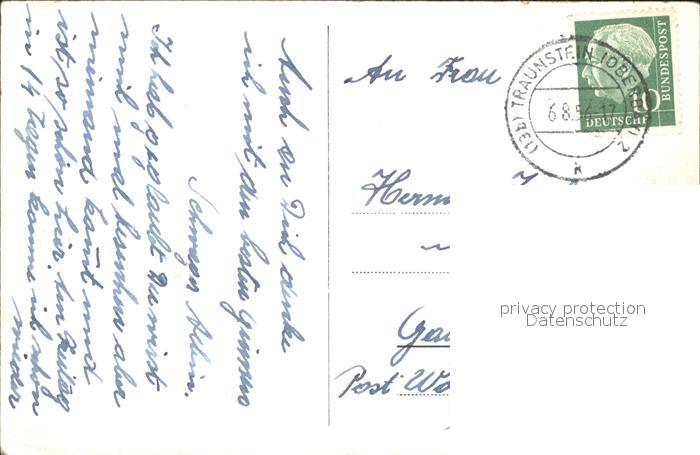 Auch an Dich denke
ich mit den besten Grüssen
Schwager Albin.
Ich hab geglaubt Du wirst
mich mal besuchen aber
niemand kommt und
ist so schön hier. Am Freitag
in 14 Tagen komme ich schon
wieder
An Frau
Herm
Ga
Post Wa
(13b) TRAUNSTEIN (OBERBAY) 2
6.8.56-17
k
10
DEUTSCHE
BUNDESPOST
privacy protection
Datenschutz